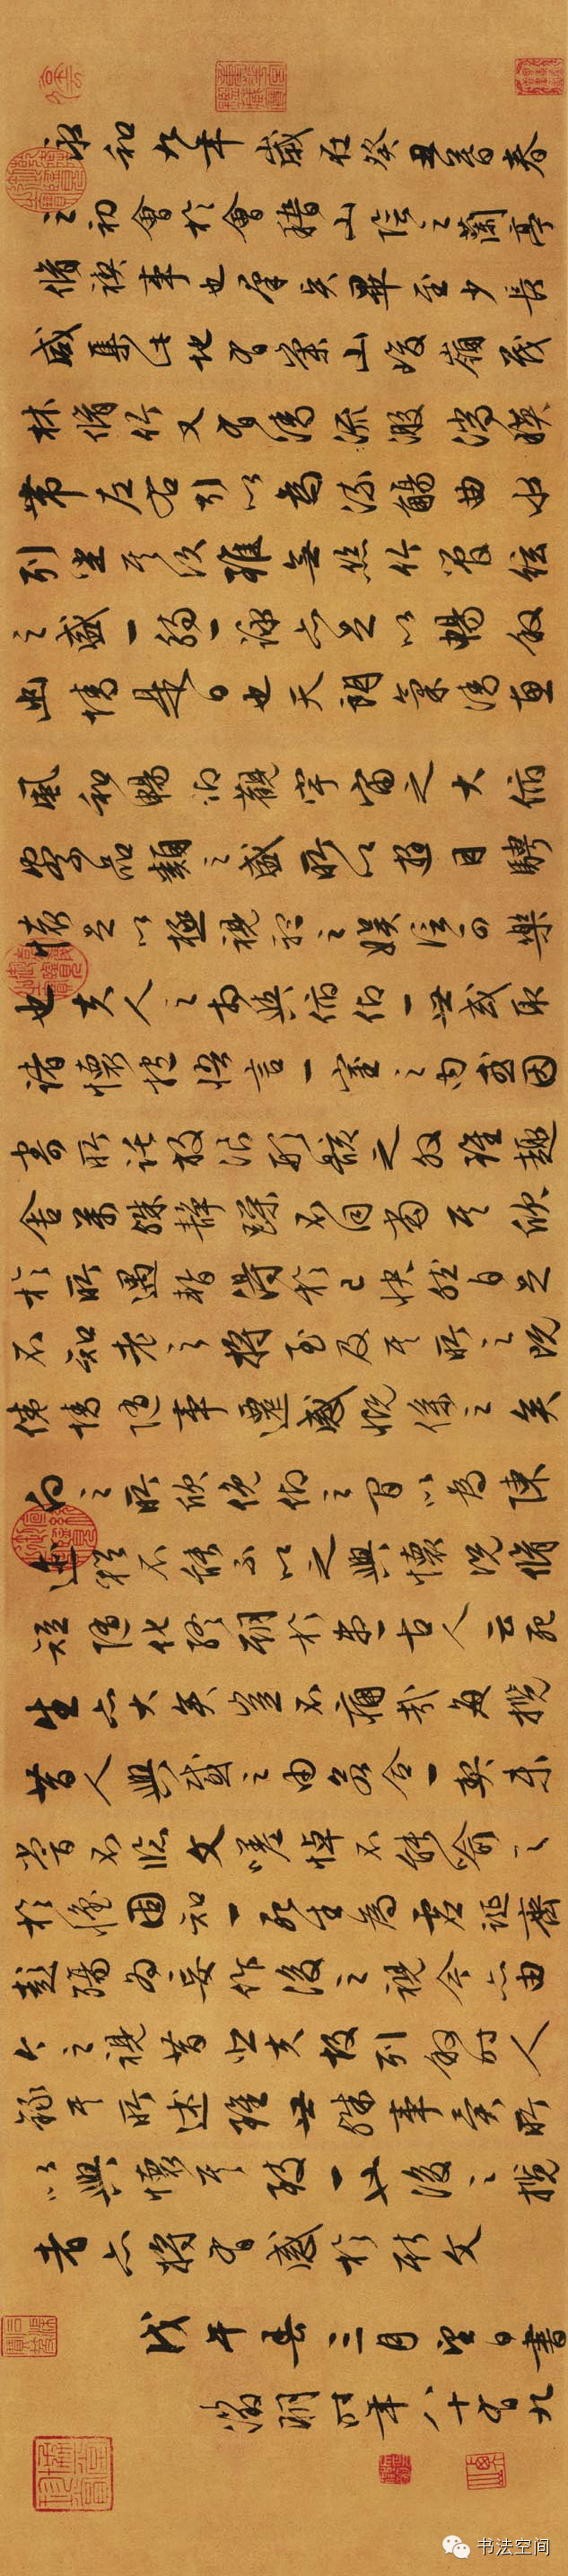 永和九年歲在癸丑暮春
之初會於會稽山陰之蘭亭
脩禊事也羣賢畢至少長
咸集此地有崇山峻嶺茂
林脩竹又有清流激湍暎
帶左右引以為流觴曲水
列坐其次雖無絲竹管絃
之盛一觴一詠亦足以暢敘
幽情是日也天朗氣清惠
風和暢仰觀宇宙之大俯
察品類之盛所以遊目騁
懷足以極視聽之娛信可樂
也夫人之相與俯仰一世或取
諸懷抱悟言一室之內或因
寄所託放浪形骸之外雖趣
舍萬殊靜躁不同當其欣
於所遇暫得於己快然自足
不知老之將至及其所之既
倦情隨事遷感慨係之矣
向之所欣俛仰之間以為陳
迹猶不能不以之興懷況脩
短隨化終期於盡古人云死
生亦大矣豈不痛哉每攬
昔人興感之由若合一契未
嘗不臨文嗟悼不能喻之
於懷固知一死生為虛誕齊
彭殤為妄作後之視今亦由
今之視昔悲夫故列敘時人
錄其所述雖世殊事異所
以興懷其致一也後之攬
者亦將有感於斯文
戊午春三月望日書
徵明時年八十有九
书法空间